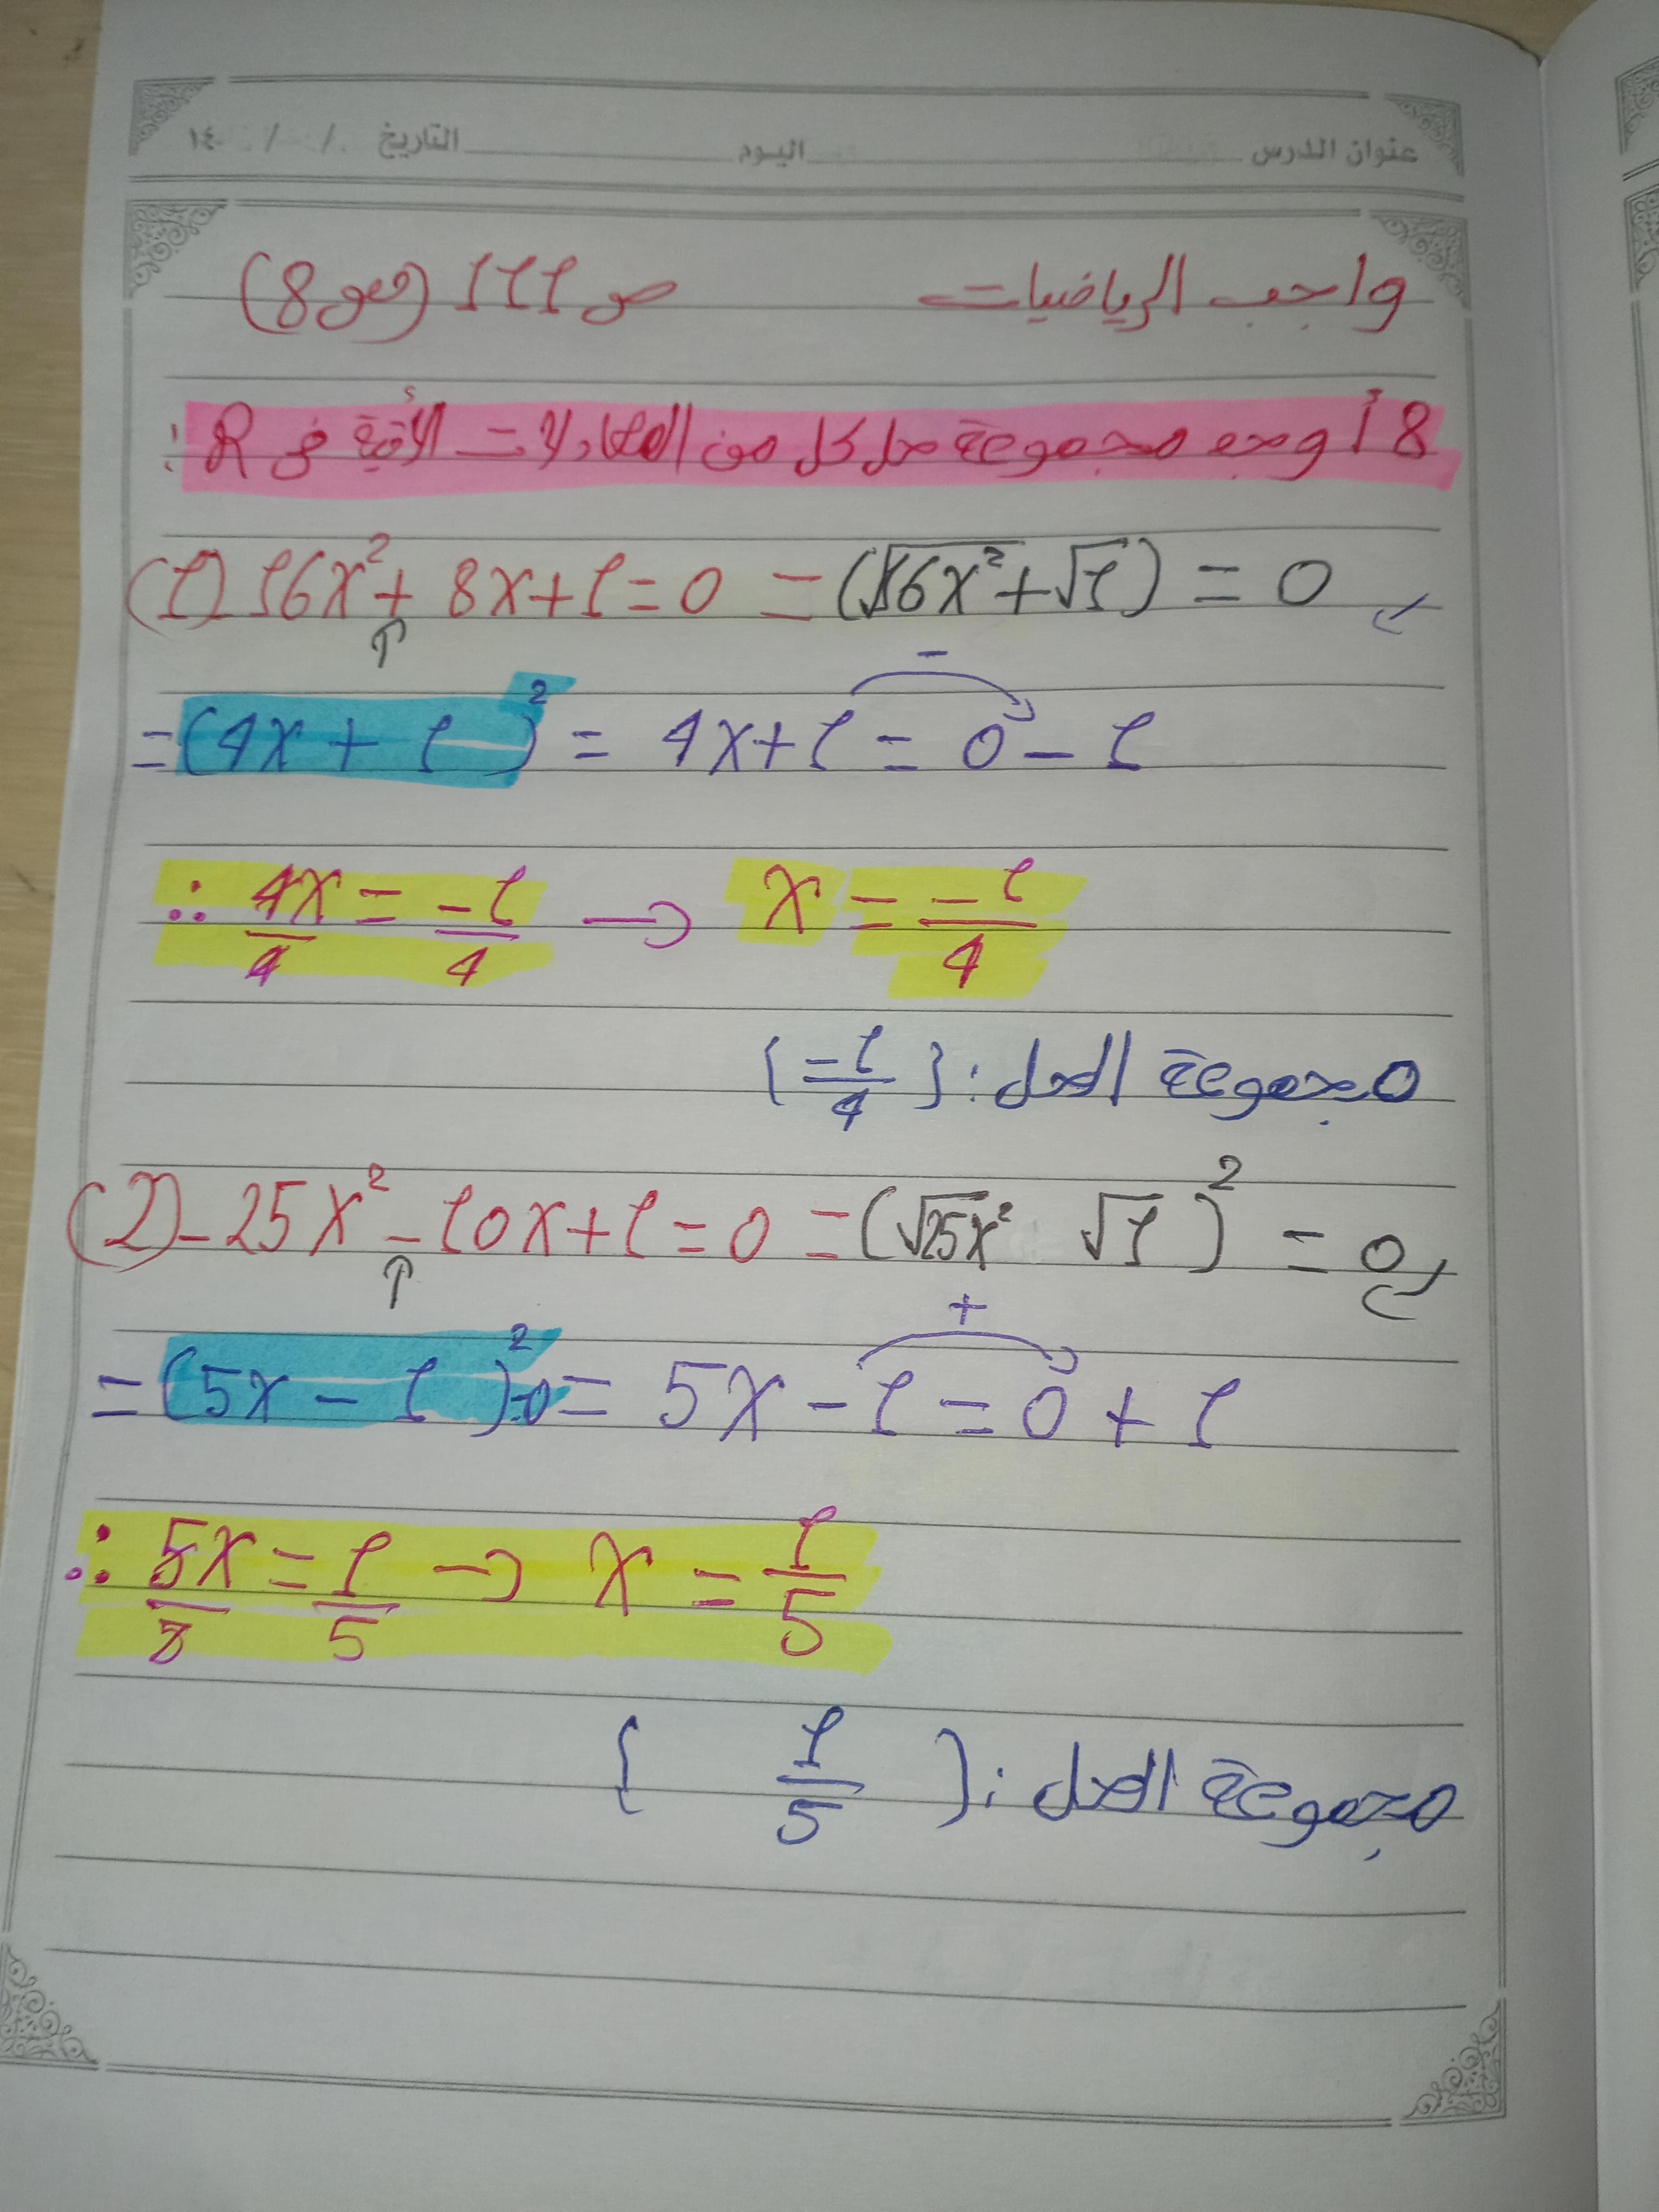 عنوان الدرس اليوم التاريخ / / ١٤
واجب الرياضيات ص 111 (8)
8 أوجد مجموعة حل كل من المعادلات الآتية في R :
(1) 16x² + 8x + 1 = 0 = (√16x² + √1) = 0
= (4x + 1)² = 4x + 1 = 0 - 1
∴ 4x/4 = -1/4 → x = -1/4
مجموعة الحل : { -1/4 }
(2) - 25x² - 10x + 1 = 0 = (√25x² √1)² = 0
= (5x - 1)² = 0 = 5x - 1 = 0 + 1
∴ 5x/5 = 1/5 → x = 1/5
مجموعة الحل : { 1/5 }